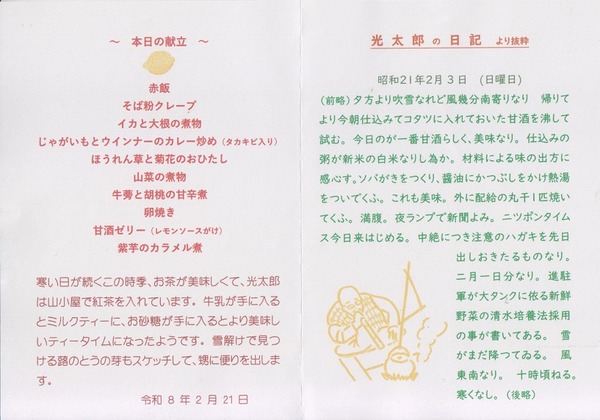 ～ 本日の献立 ～
赤飯
そば粉クレープ
イカと大根の煮物
じゃがいもとウインナーのカレー炒め（タカキビ入り）
ほうれん草と菊花のおひたし
山菜の煮物
牛蒡と胡桃の甘辛煮
卵焼き
甘酒ゼリー（レモンソースがけ）
紫芋のカラメル煮
寒い日が続くこの時季、お茶が美味しくて、光太郎
は山小屋で紅茶を入れています。牛乳が手に入る
とミルクティーに、お砂糖が手に入るとより美味し
いティータイムになったようです。雪解けで見つ
ける蕗のとうの芽もスケッチして、甥に便りを出しま
す。
令和８年２月２１日
光太郎の日記 より抜粋
昭和21年2月3日 （日曜日）
（前略）夕方より吹雪なれど風幾分南寄りなり 帰りて
より今朝仕込みてコタツに入れておいた甘酒を沸して
試む。今日のが一番甘酒らしく、美味なり。仕込みの
粥が新米の白米なりし為か。材料による味の出方に
感心す。ソバがきをつくり、醤油にかつぶしをかけ熱湯
をついでくふ。これも美味。外に配給の丸干１匹焼い
てくふ。満腹。夜ランプで新聞よみ。ニツポンタイム
ス今日来はじめる。中絶につき注意のハガキを先日
出しおきたるものなり。
二月一日分なり。進駐
軍が大タンクに依る新鮮
野菜の清水培養法採用
の事が書いてある。 雪
がまだ降つてゐる。 風
東南なり。 十時頃ねる。
寒くなし。（後略）